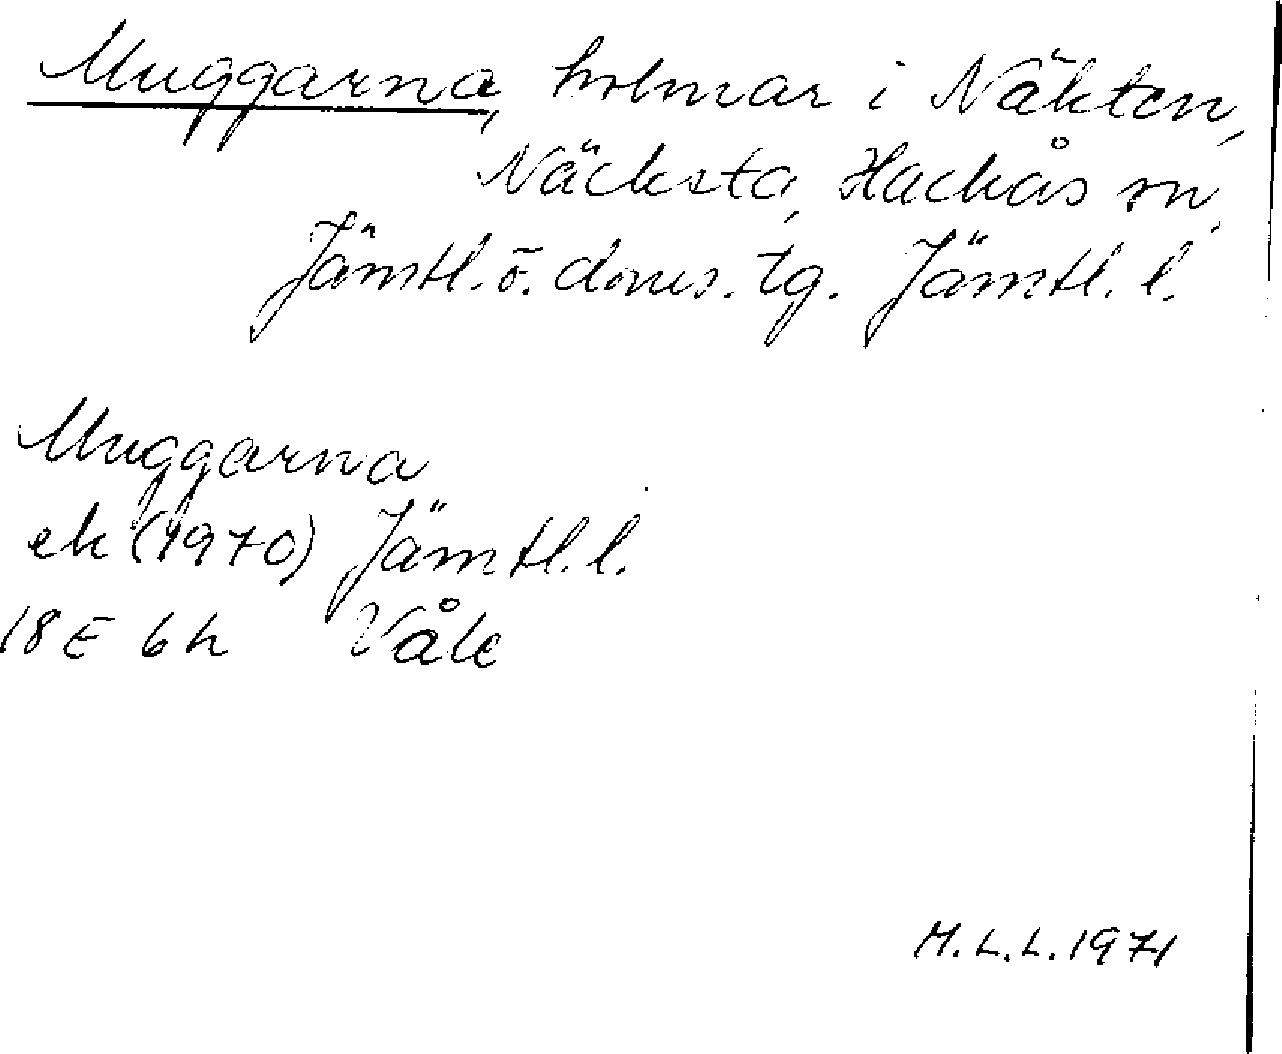 Muggarna, holmar i Näkten,
Näcksta, Hackås sn,
Jämtl. ö. doms. tg. Jämtl. l.
Muggarna
ek (1970) Jämtl. l.
18E 6h Våle
M.L.L. 1971